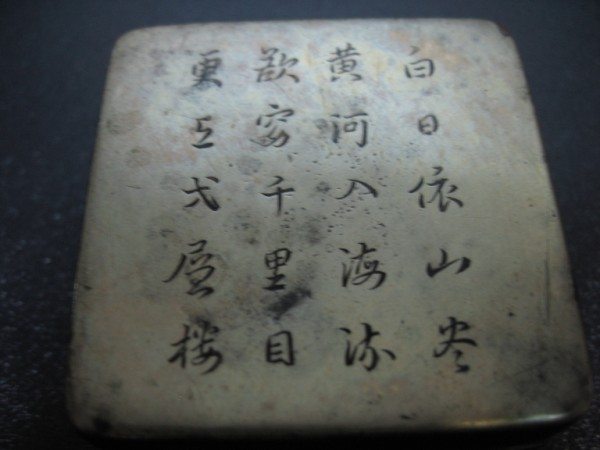 白日依山尽
黄河入海流
欲穷千里目
更上弌层楼